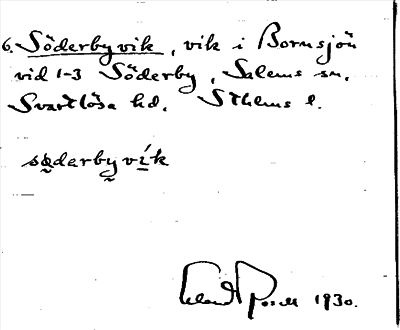 6. Söderbyvik, vik i Bornsjön
vid 1-3 Söderby, Salems sn.
Svartlösa hd. Sthlms l.
södərbyvík
1930.